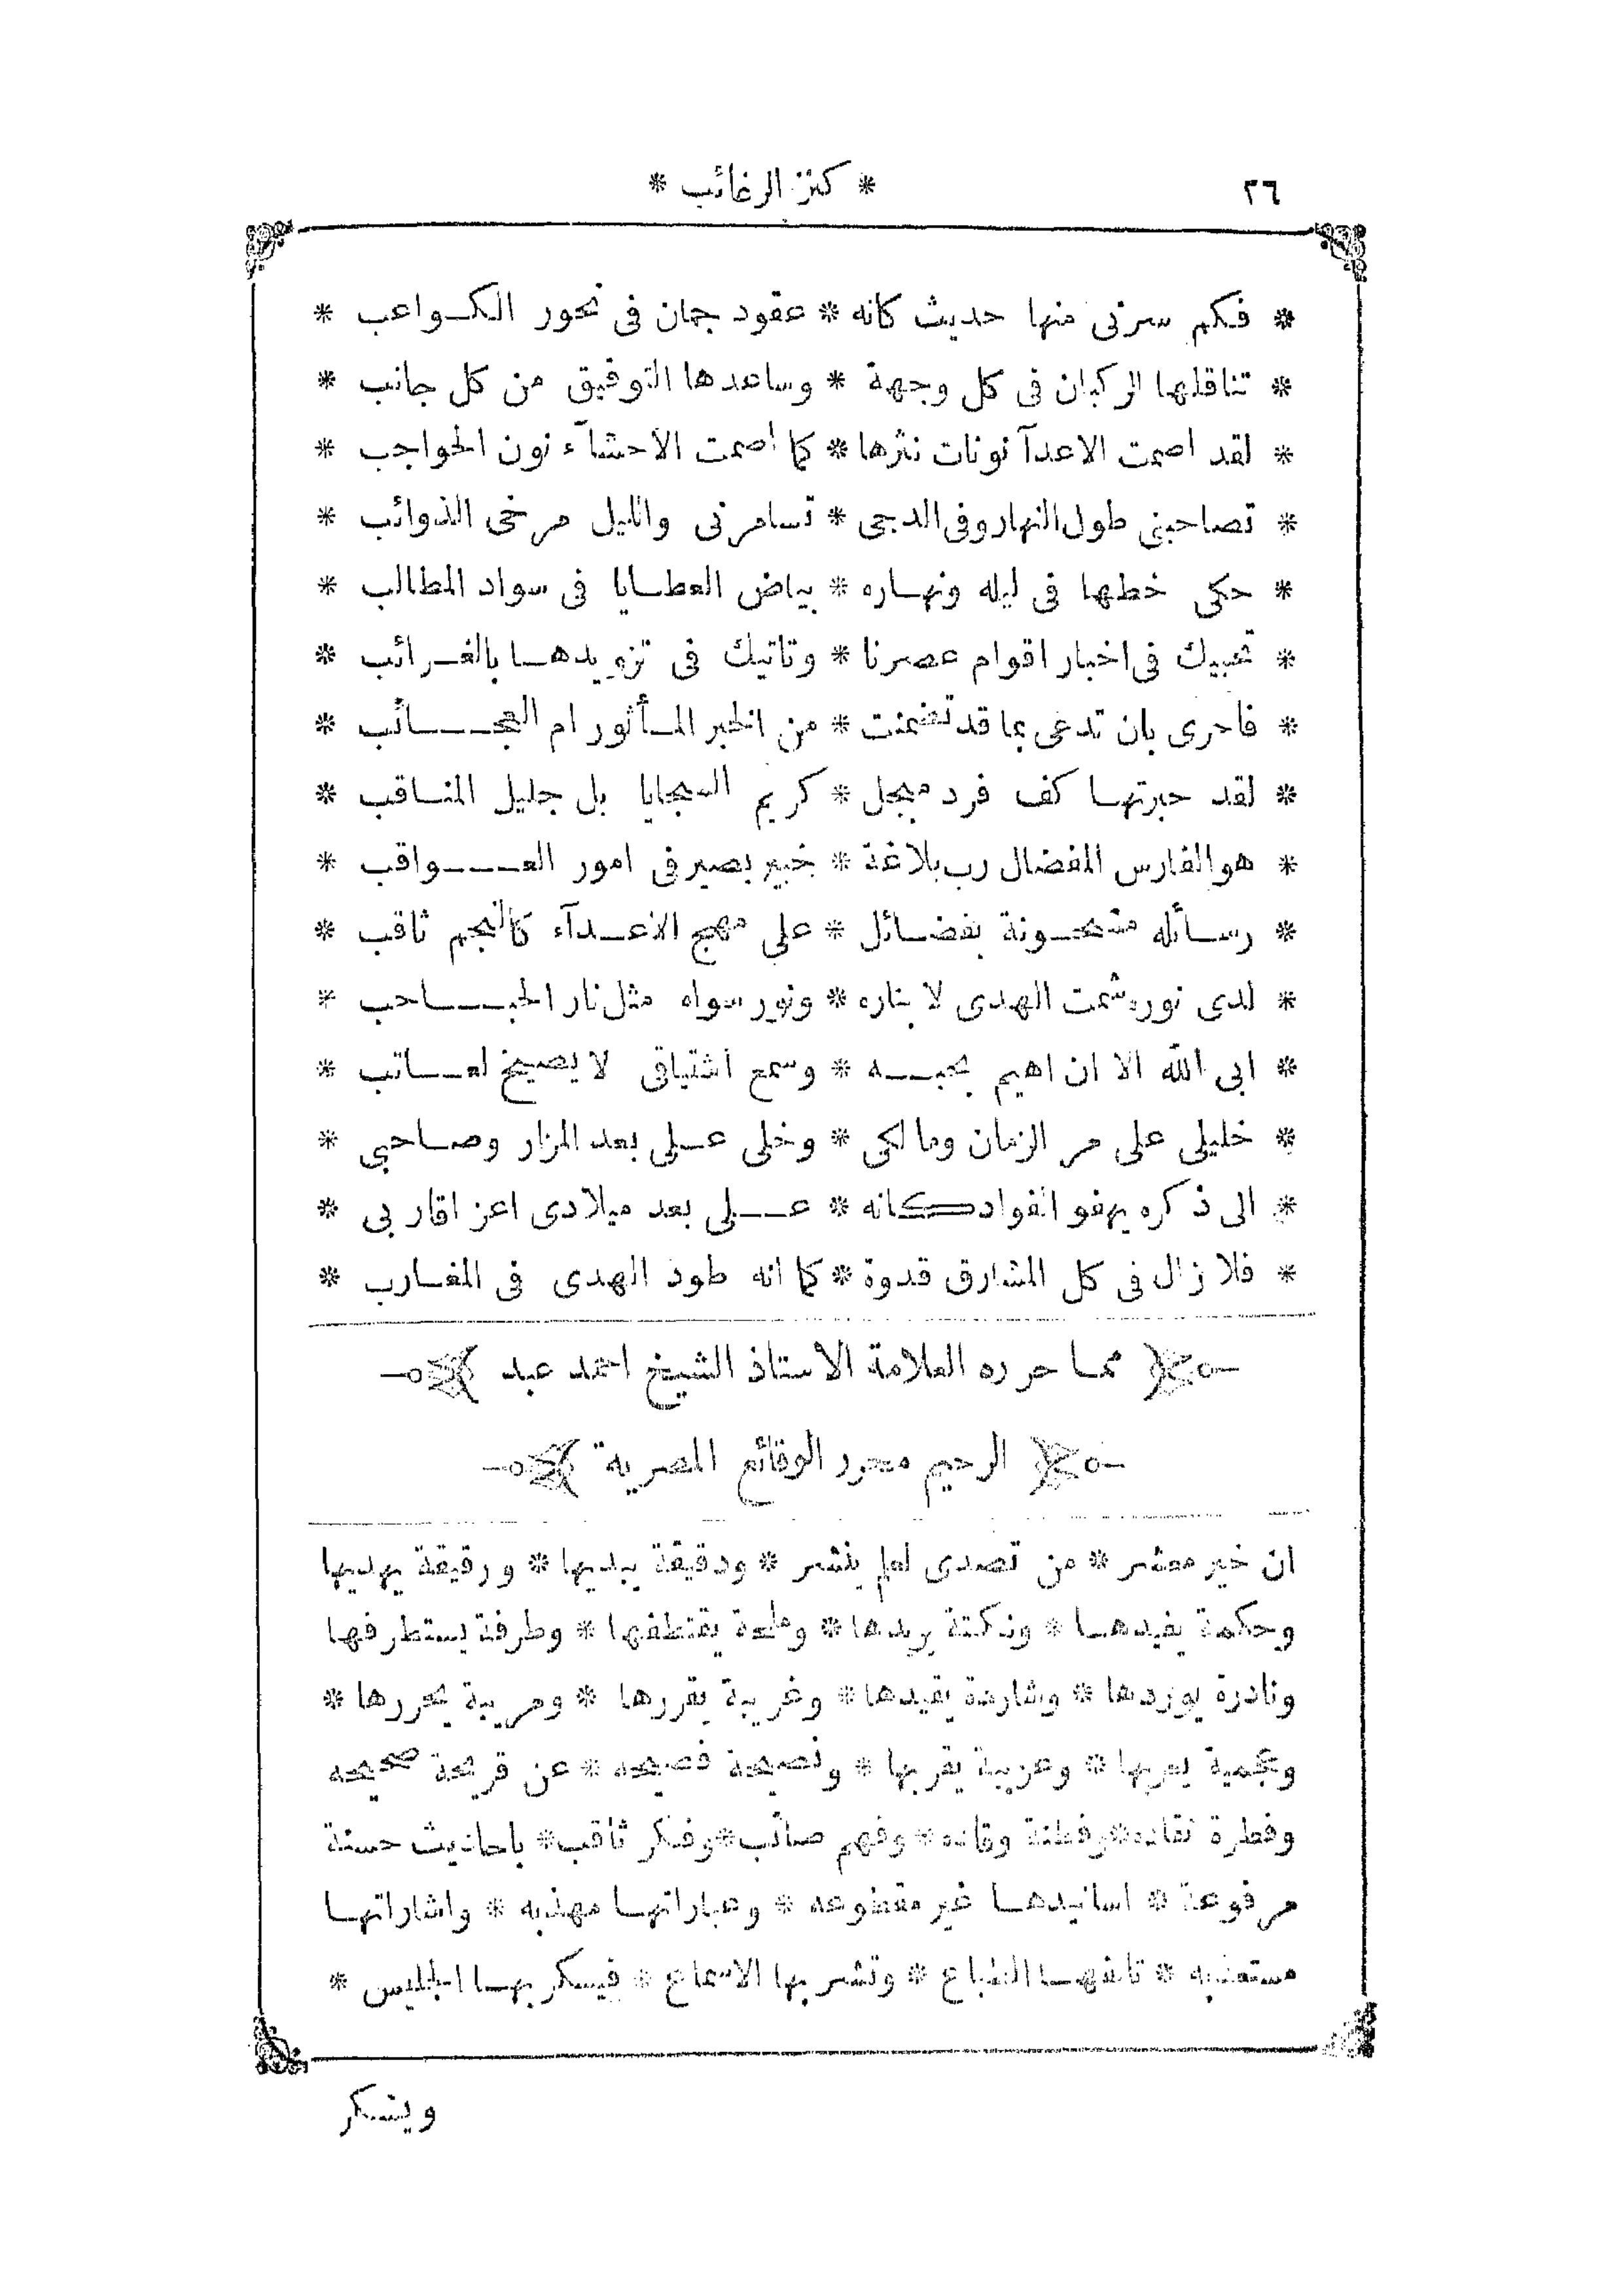 ٢٦
* كنز الرغائب *
* فكم سرنى منها حديث كانه * عقود جمان فى نحور الكواعب *
* تناقلها الركبان فى كل وجهة * وساعدها التوفيق من كل جانب *
* لقد اصمت الاعدآ نونات نثرها * كما اصمت الاحشآء نون الحواجب *
* تصاحبنى طول النهار وفى الدجى * تسامرنى والليل مرخى الذوائب *
* حكى خطها فى ليله ونهاره * بياض العطايا فى سواد المطالب *
* تحبيك فى اخبار اقوام عصرنا * وتاتيك فى تزويدها بالغرائب *
* فاحرى بان تدعى بما قد تضمنت * من الخبر المأثور ام العجائب *
* لقد حبرتها كف فرد مبجل * كريم السجايا بل جليل المناقب *
* هو الفارس المفضال رب بلاغة * خبير بصير فى امور العواقب *
* رسائله مشحونة بفضائل * على مهج الاعدآء كالنجم ثاقب *
* لدى نوره شمت الهدى لا بناره * ونور سواه مثل نار الحباحب *
* ابى الله الا ان اهيم بحبه * وسمع اشتياقى لا يصيخ لعاتب *
* خليلى على مر الزمان ومالكى * وخلى على بعد المزار وصاحبى *
* الى ذكره يهفو الفواد كانه * على بعد ميلادى اعز اقاربى *
* فلا زال فى كل المشارق قدوة * كما انه طود الهدى فى المغارب *
مما حرره العلامة الاستاذ الشيخ احمد عبد
الرحيم محرر الوقائع المصرية
ان خير معشر * من تصدى لعلم ينشر * ودقيقة يبديها * ورقيقة يهديها
وحكمة يفيدها * ونكتة يريدها * وملحة يقتطفها * وطرفة يستطرفها
ونادرة يوردها * وشاردة يقيدها * وغريبة يقررها * ومريبة يحررها *
وعجمية يعربها * وعزيبة يقربها * ونصيحة فصيحه * عن قريحة صحيحه
وفطرة نقاده * وفطنة وقاده * وفهم صائب * وفكر ثاقب * باحاديث حسنة
مرفوعة * اسانيدها غير مقطوعه * وعباراتها مهذبه * واشاراتها
مستعذبه * تالفها الطباع * وتشربها الاسماع * فيسكر بها الجليس *
ويشكر